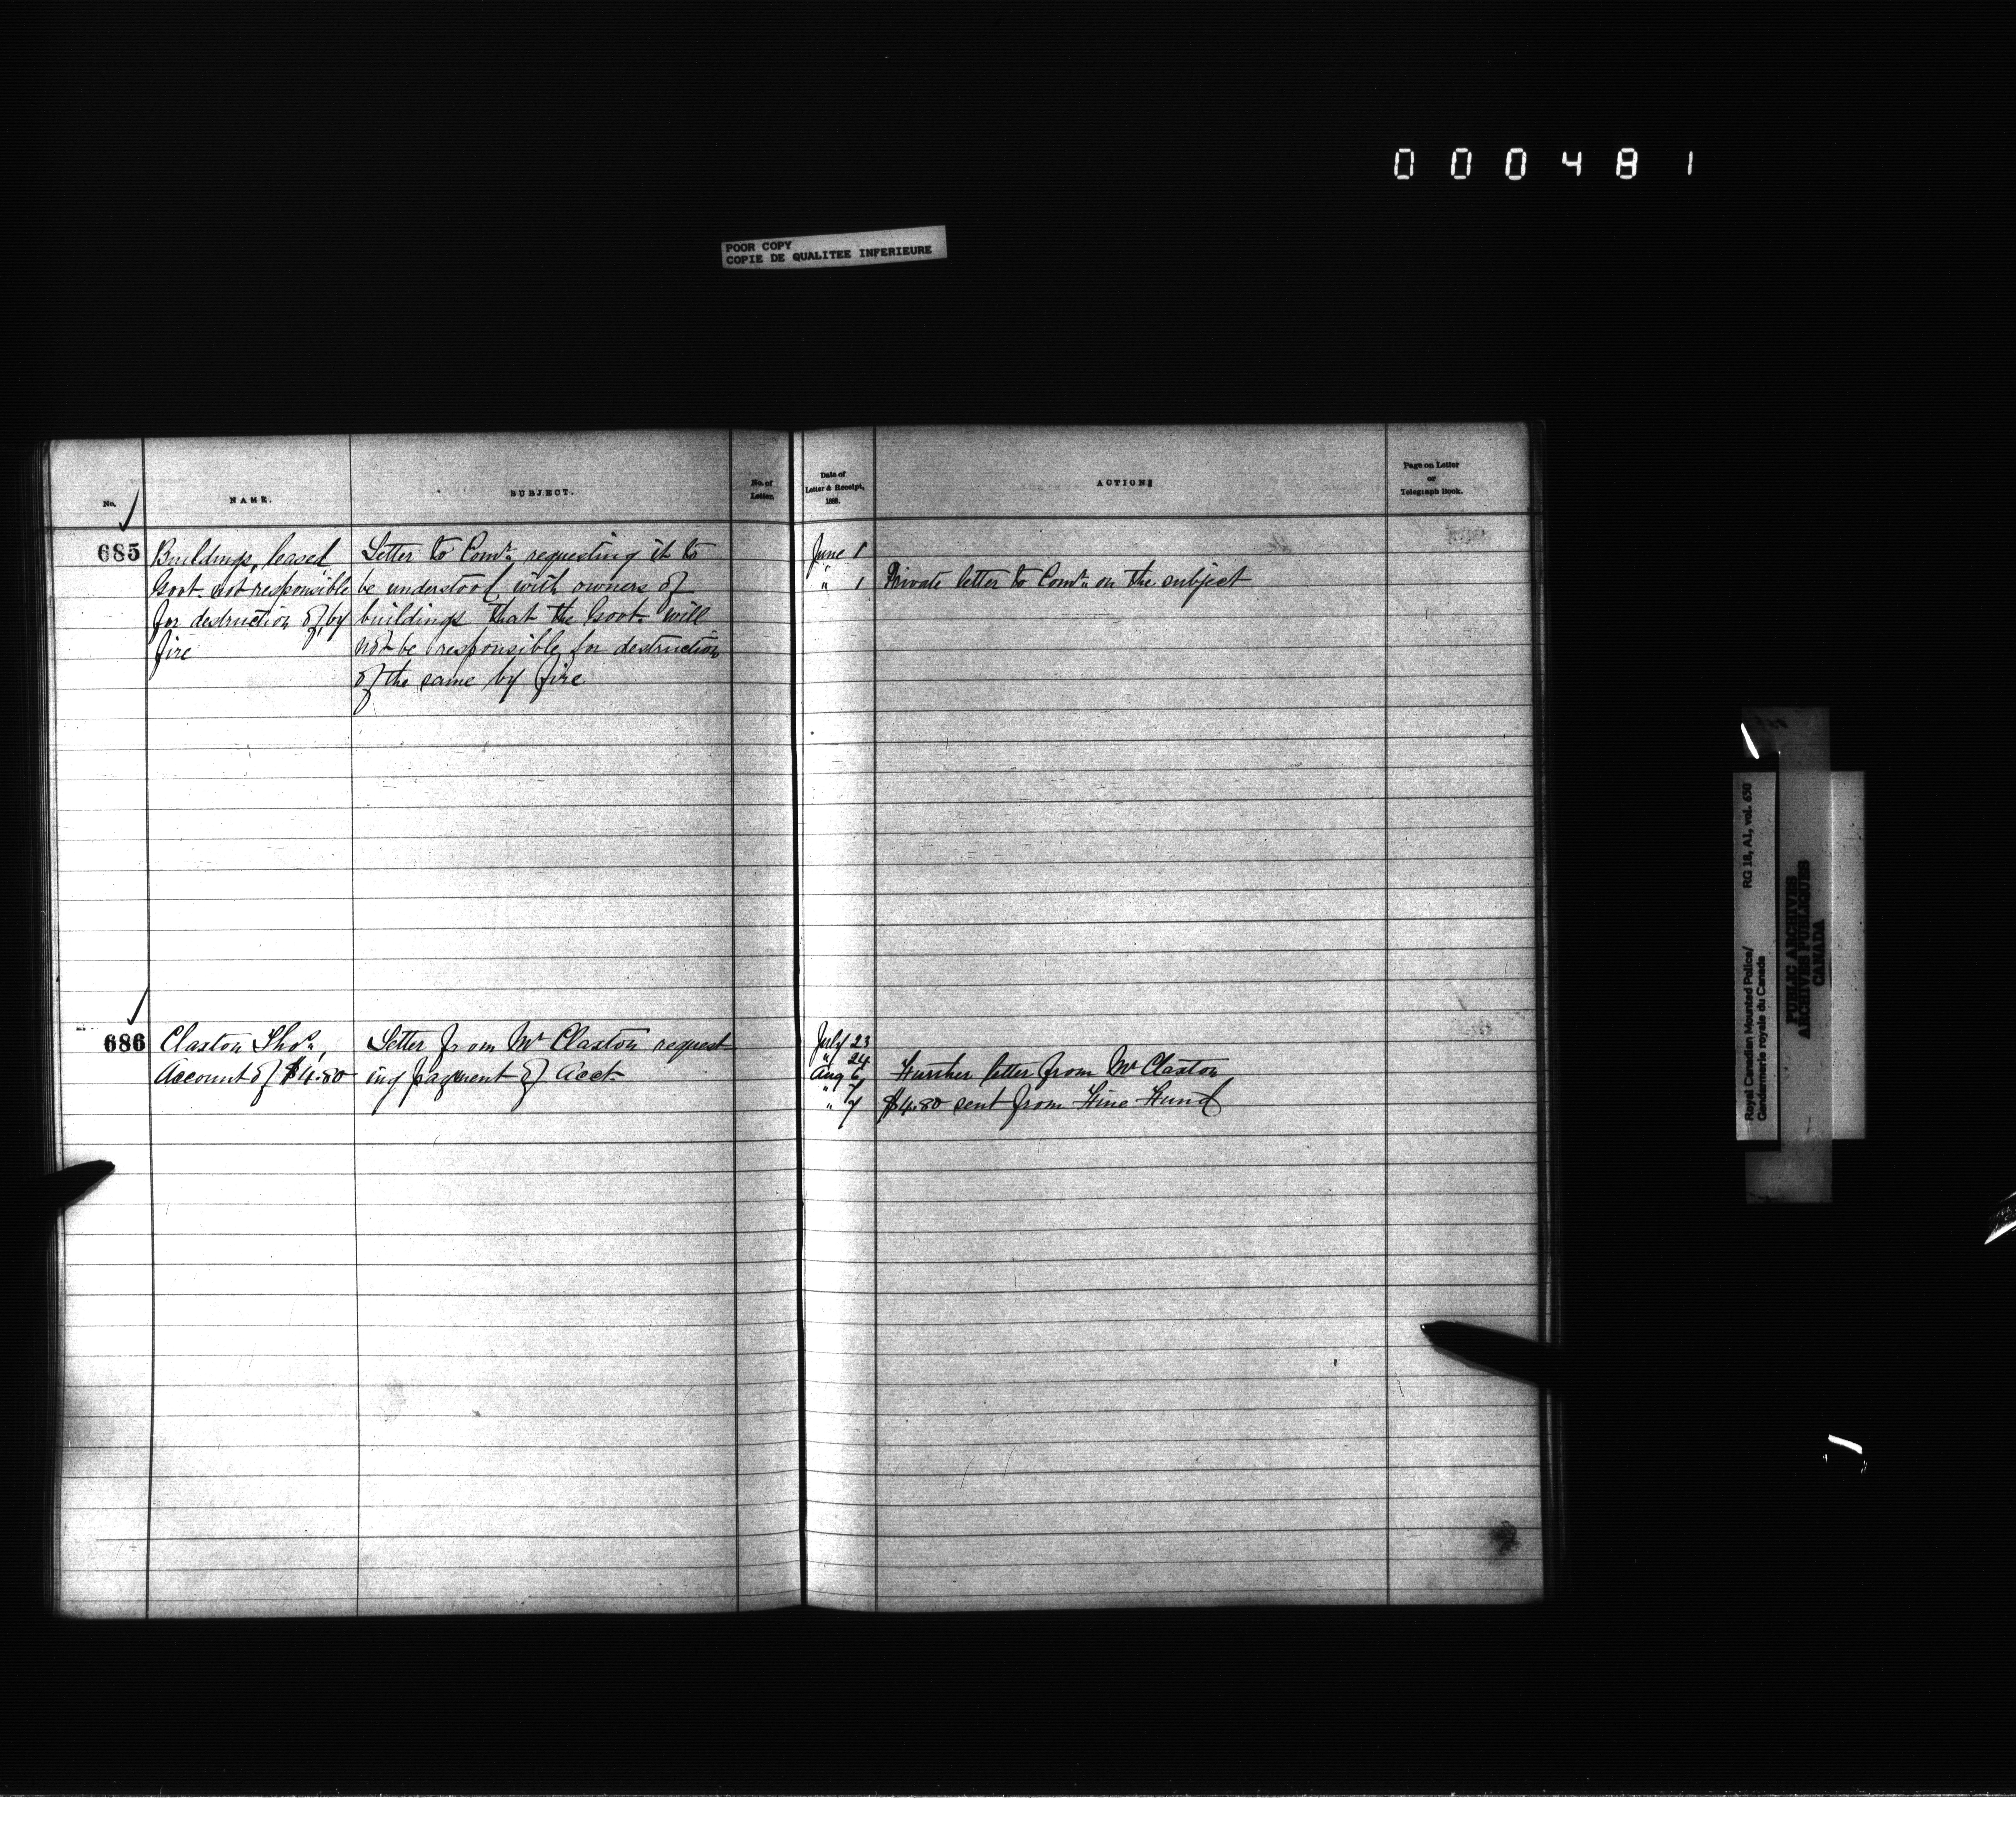 000481
POOR COPY
COPIE DE QUALITEE INFERIEURE
No. NAME. SUBJECT. No. of Letter. Date of Letter & Receipt, 1888. ACTION: Page on Letter or Telegraph Book.
685 Buildings, leased Letter to Comr. requesting it to June 1
Govt. not responsible be understood with owners of " 1 Private letter to Comr. on the subject
for destruction of, by buildings that the Govt. will
fire not be responsible for destruction
of the same by fire
686 Claxton Thos., Letter from Mr Claxton request July 23
" 24
Account of $4.80 ing payment of Acct. Aug 6 Further letter from Mr Claxton
" 7
" 7 $4.80 sent from Fine Fund
Royal Canadian Mounted Police/ RG 18, A1, vol. 650
Gendarmerie royale du Canada
PUBLIC ARCHIVES
ARCHIVES PUBLIQUES
CANADA